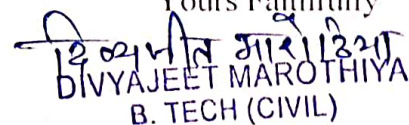 Yours Faithfully
दिव्यजीत मारोठिया
DIVYAJEET MAROTHIYA
B. TECH (CIVIL)